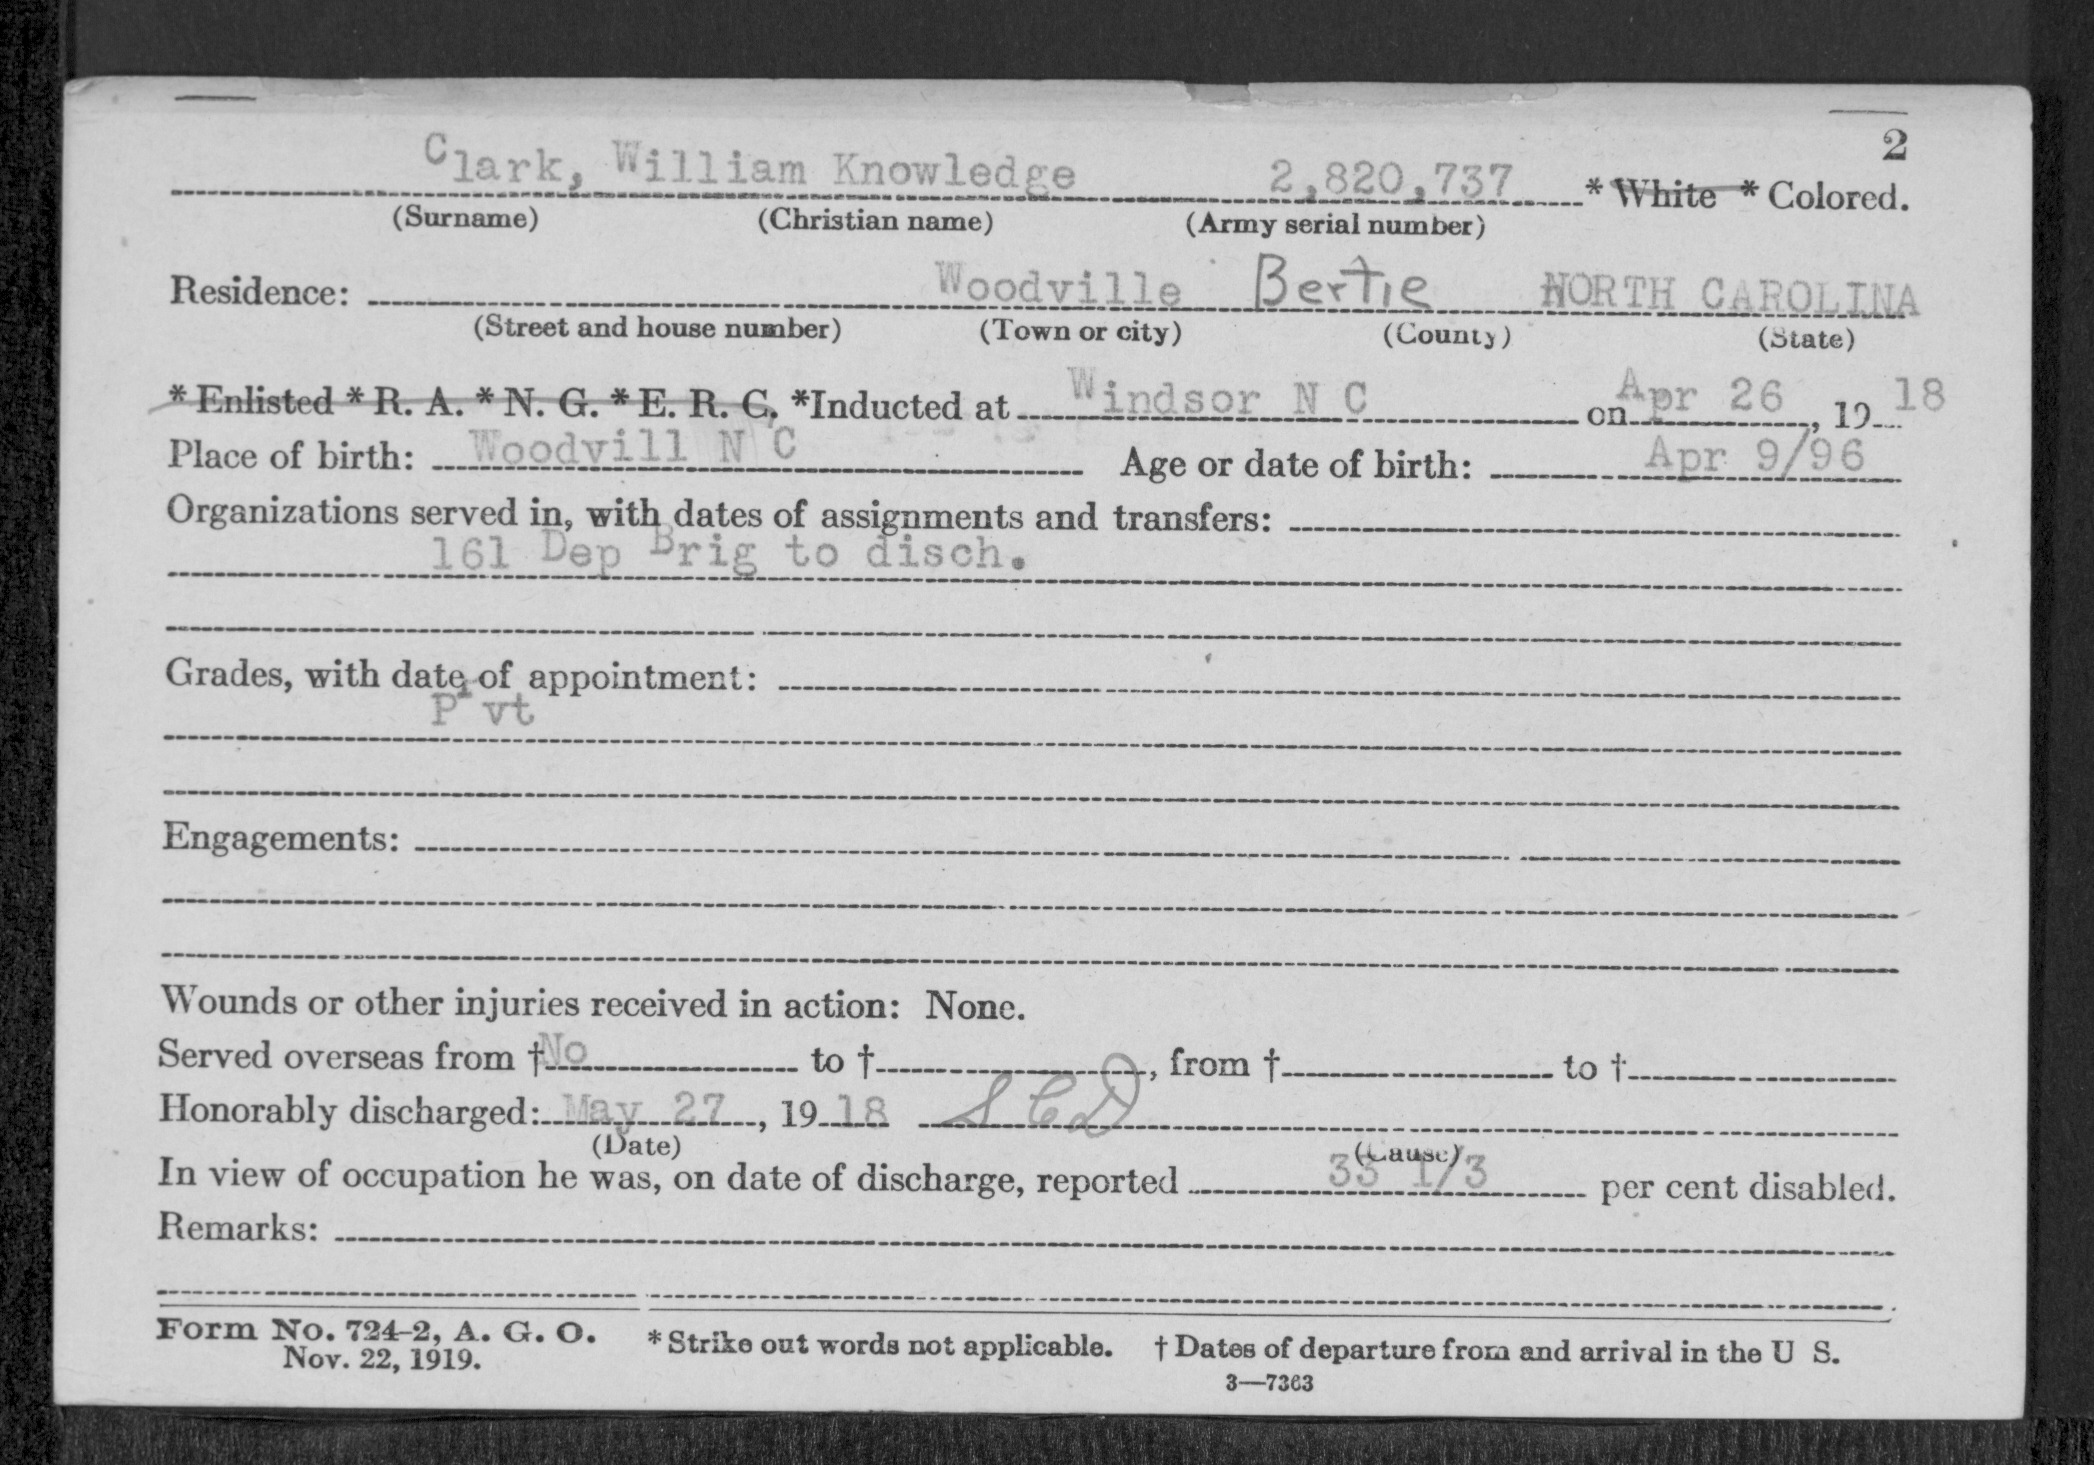 2
Clark, William Knowledge 2,820,737 * White * Colored.
(Surname) (Christian name) (Army serial number)
Residence: Woodville Bertie NORTH CAROLINA
(Street and house number) (Town or city) (County) (State)
* Enlisted * R. A. * N. G. * E. R. C. *Inducted at Windsor N C on Apr 26, 19 18
Place of birth: Woodvill N C Age or date of birth: Apr 9/96
Organizations served in, with dates of assignments and transfers:
161 Dep Brig to disch.
Grades, with date of appointment:
Pvt
Engagements:
Wounds or other injuries received in action: None.
Served overseas from † No to †, from † to †
Honorably discharged: May 27, 19 18 S C D
(Date) (Cause)
In view of occupation he was, on date of discharge, reported 33 1/3 per cent disabled.
Remarks:
Form No. 724-2, A. G. O. * Strike out words not applicable. † Dates of departure from and arrival in the U S.
Nov. 22, 1919.
3—7363